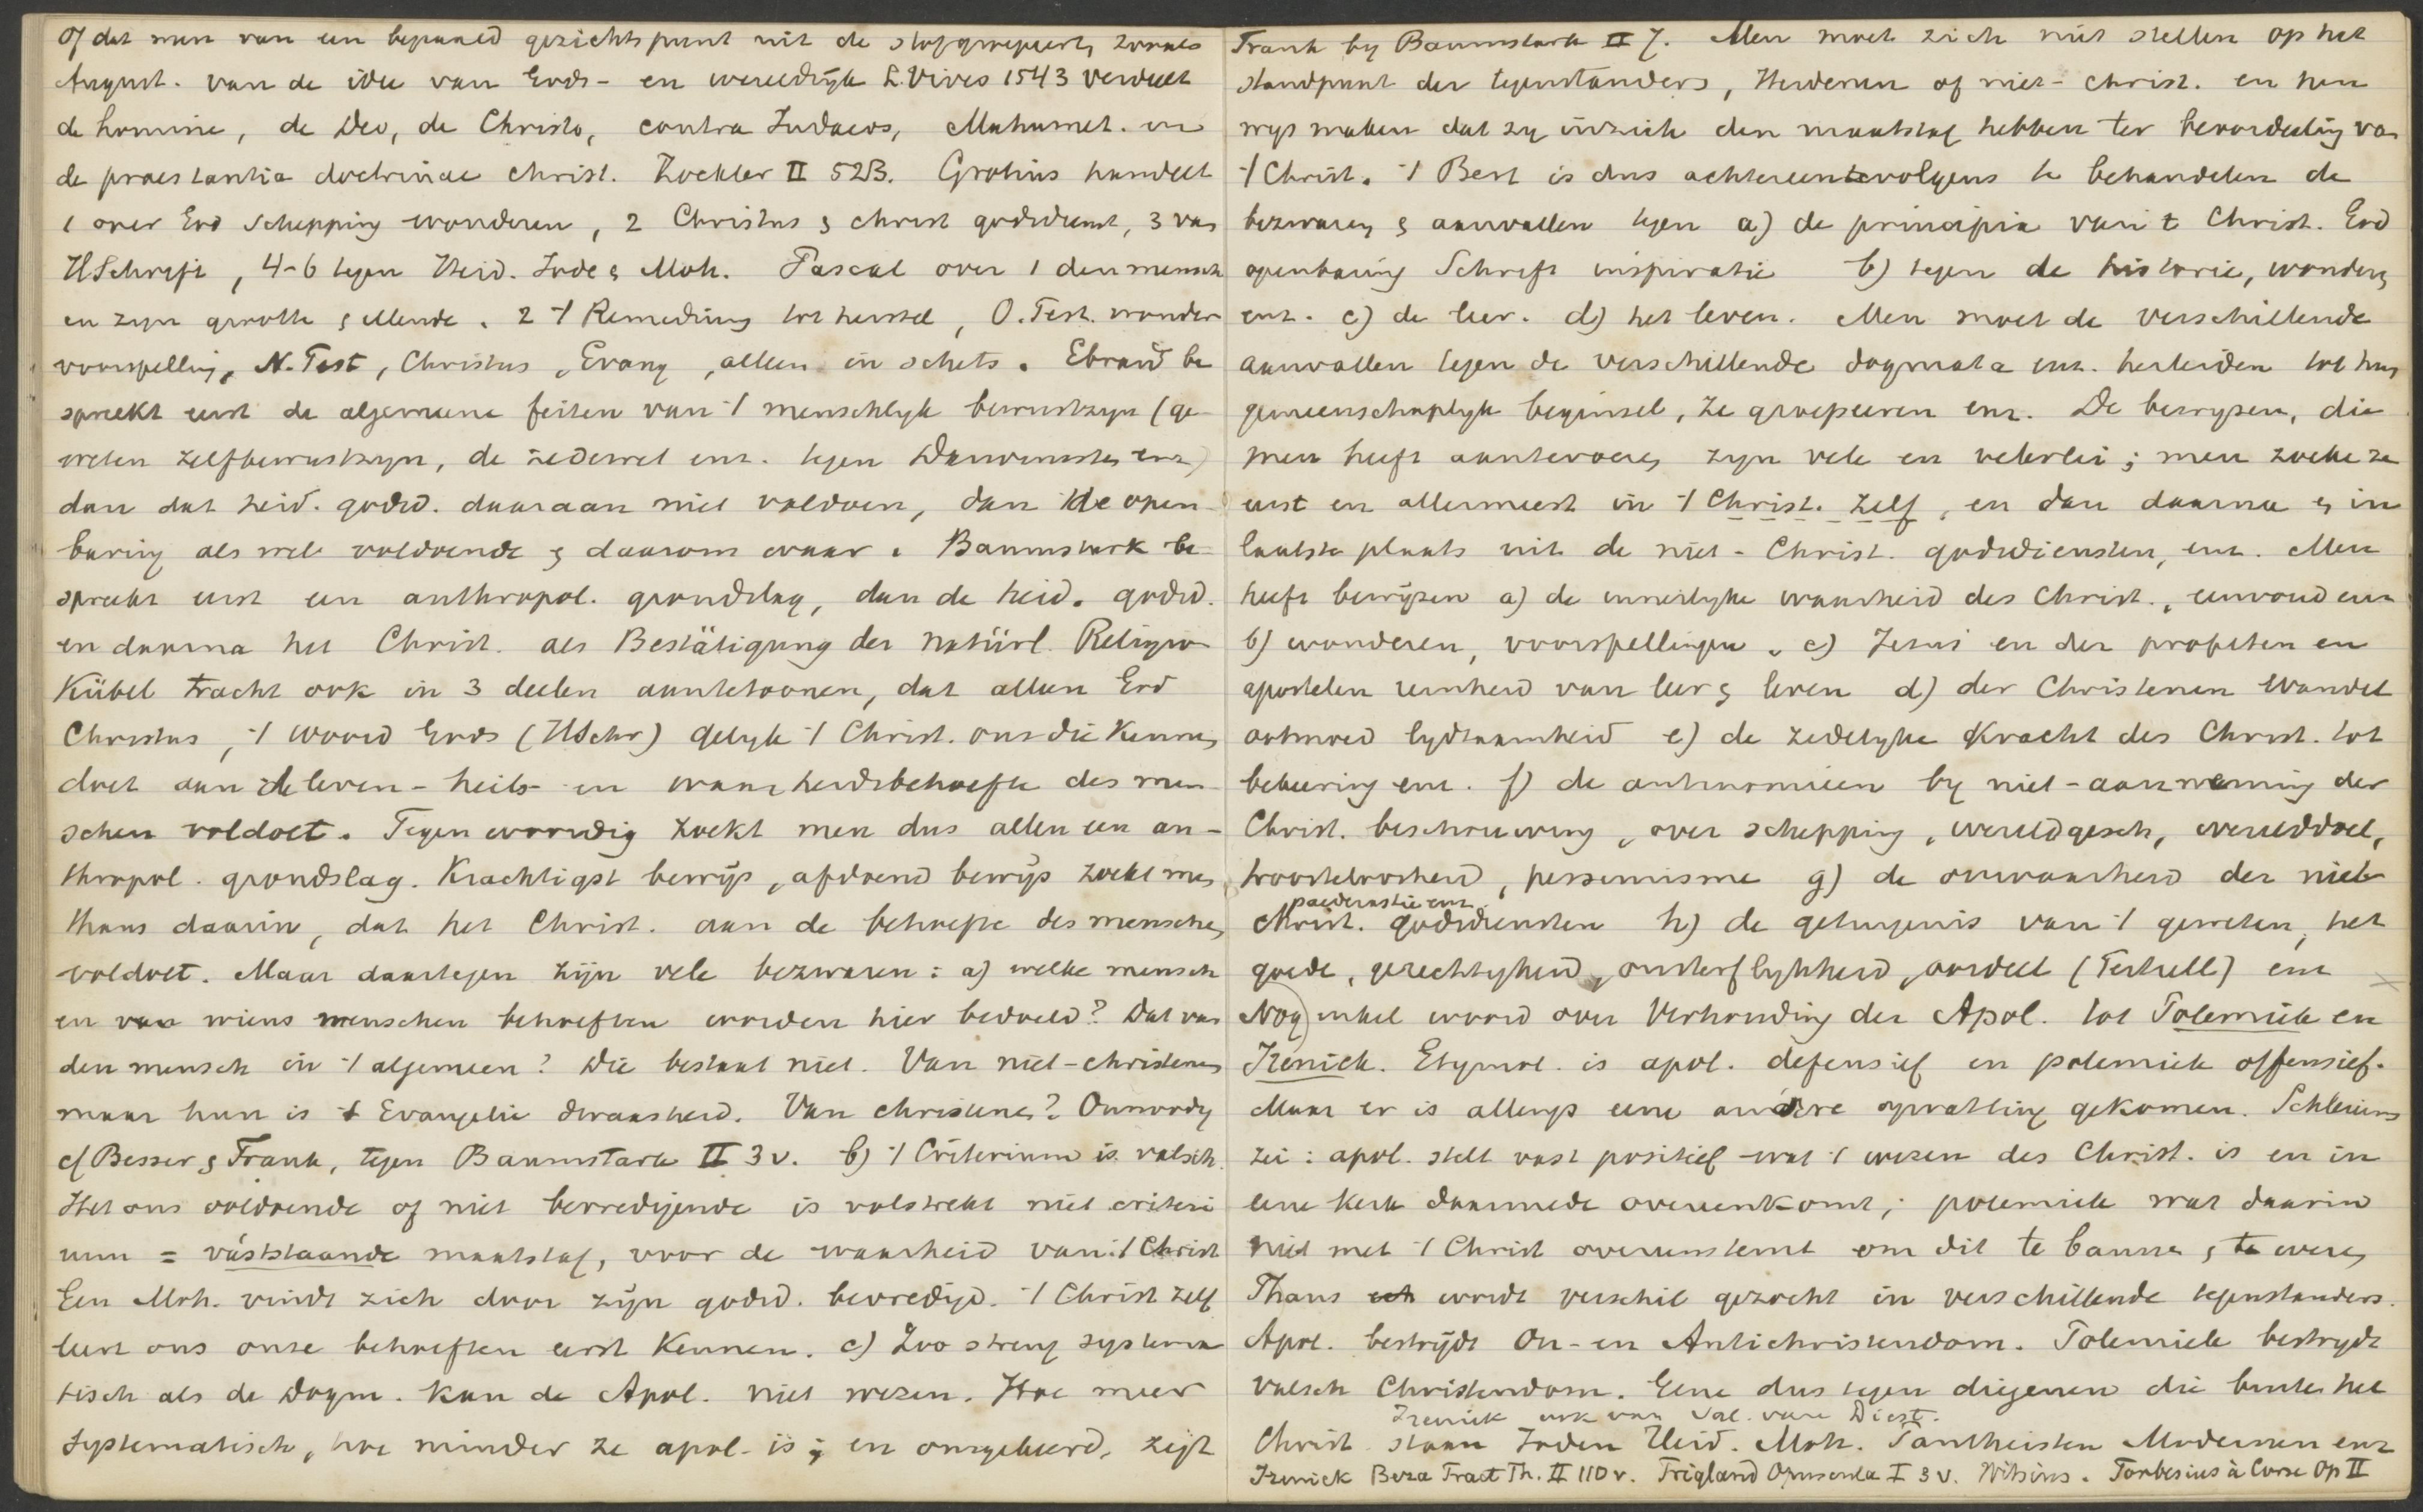 of dat men van een bepaald gezichtspunt uit de stof groepeert, zooals
August. van de idee van Gods- en wereldrijk L. Vives 1543 verdeelt
de homine, de Deo, de Christo, contra Judaeos, Mahumet. en
de praestantia doctrinae christ. Zöckler II 523. Grotius handelt
1 over God schepping wonderen, 2 Christus & christ godsdienst, 3 van
HSchrift, 4-6 tegen Heid. Jode & Moh. Pascal over 1 den mensch
en zyn grootte & ellende. 2 't Remedium tot herstel, O. Test. wonder
voorspelling, N. Test, Christus, Evang, alleen in schets. Ebrard be
spreekt eerst de algemeene feiten van 't menschlyk bewustzyn (ge
weten zelfbewustzyn, de zedewet enz. tegen Darwinisten enz)
dan dat heid. godsd. daaraan niet voldoen, dan de open
baring als wel voldoende & daarom waar. Baumstark be
spreekt eerst een anthropol. grondslag, dan de heid. godsd.
en daarna het Christ. als Bestätigung der natürl. Religion
Kübel tracht ook in 3 deelen aantetoonen, dat alleen God
Christus, 't woord Gods (HSchr) gelyk 't Christ. ons die kennen
doet aan de leven- heils- en waarheidsbehoefte des men-
schen voldoet. Tegenwoordig zoekt men dus alleen een an-
thropol. grondslag. Krachtigst bewijs, afdoend bewijs zoekt men
thans daarin, dat het Christ. aan de behoefte des menschen
voldoet. Maar daartegen zijn vele bezwaren: a) welke mensch
en van wiens menschen behoeften worden hier bedoeld? Dat van
den mensch in 't algemeen? Die bestaat niet. Van niet-christenen
maar hun is 't Evangelie dwaasheid. Van christenen? Onnoodig
cf Besser & Frank, tegen Baumstark II 3 v. b) 't Criterium is valsch.
Het ons voldoende of niet bevredigende is volstrekt niet criteri
um = vaststaande maatstaf, voor de waarheid van 't Christ
Een Moh. vindt zich door zijn godsd. bevredigd. 't Christ zelf
leert ons onze behoeften eerst kennen. c) Zoo streng systema
tisch als de Dogm. kan de Apol. niet wezen. Hoe meer
systematisch, hoe minder ze apol. is; en omgekeerd, zegt
Frank by Baumstark II 7. Men moet zich niet stellen op het
standpunt der tegenstanders, Heidenen of niet-christ. en hen
wys maken dat zy in zich den maatstaf hebben ter beoordeeling van
't Christ. 't Best is dus achtereenvolgens te behandelen de
bezwaren & aanvallen tegen a) de principia van 't Christ. God
openbaring Schrift inspiratie b) tegen de historie, wonderen
enz. c) de leer. d) het leven. Men moet de verschillende
aanvallen tegen de verschillende dogmata enz. herleiden tot hun
gemeenschaplyk beginsel, ze groepeeren enz. De bewyzen, die
men heeft aantevoeren zyn vele en velerlei; men zoeke ze
eerst en allermeest in 't Christ. zelf, en dan daarna & in
laatste plaats uit de niet-Christ. godsdiensten, enz. Men
heeft bewijzen a) de innerlyke waarheid des Christ., eenvoud enz
b) wonderen, voorspellingen, c) Jezus en der profeten en
apostelen reinheid van leer & leven d) der Christenen wandel
ootmoed lydzaamheid e) de zedelyke kracht des Christ. tot
bekeering enz. f) de antinomieen by niet-aanneming der
Christ. beschouwing, over schepping, wereldgesch, werelddoel,
troosteloosheid, pessimisme g) de onwaarheid der niet
paederastie enz.
Christ. godsdiensten h) de getuigenis van 't geweten, het
goede, gerechtigheid, onsterflykheid, oordeel (Tertull) enz
Nog) enkel woord over Verhouding der Apol. tot Polemiek en
Irenick. Etymol. is apol. defensief en polemiek offensief.
Maar er is allengs eene andere opvatting gekomen. Schleierm
zei: apol. stelt vast positief wat 't wezen des Christ. is en in
eene kerk daarmede overeenkomt; polemiek wat daarin
niet met 't Christ overeenstemt om dit te bannen & te weren
Thans wordt verschil gezocht in verschillende tegenstanders.
Apol. bestrijdt On- en Antichristendom. Polemiek bestrydt
valsch Christendom. Gene dus tegen diegenen die buiten het
Irenick ook van Sal. van Diest.
Christ. staan Joden Heid. Moh. Pantheisten Modernen enz
Irenick Beza Tract Th. II 110 v. Trigland Opuscula I 3 v. Witsius. Forbesius à Corse Op II